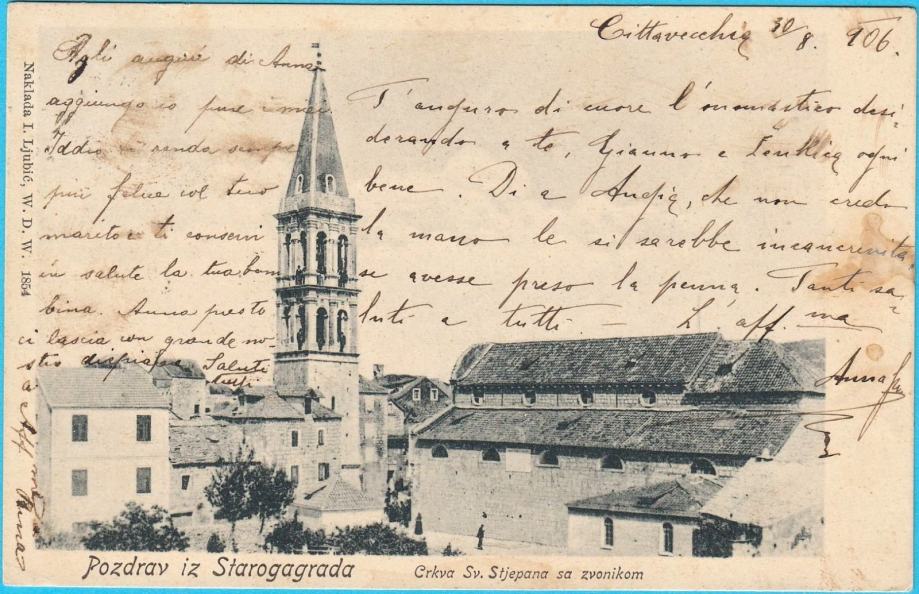 Cittavecchia 30/8. 906.
T'auguro di cuore l'onomastico desi-
derando a te, Gianno e ogni
bene. Di a Angia, che non credo
la mano le si sarebbe incancrenita
se avesse preso la penna. Tanti sa-
luti a tutti — L'aff.ma
Anna
Agli auguri di Anna
aggiungo io pure i miei
Iddio ti renda sempre
più felice col tuo
marito e ti conservi
in salute la tua bam
bina. Anna presto
ci lascia con grande no-
stro dispiacere Saluti
tutti
Aff.ma
Naklada I. Ljubić, W. D. W. 1854
Pozdrav iz Starogagrada
Crkva Sv. Stjepana sa zvonikom